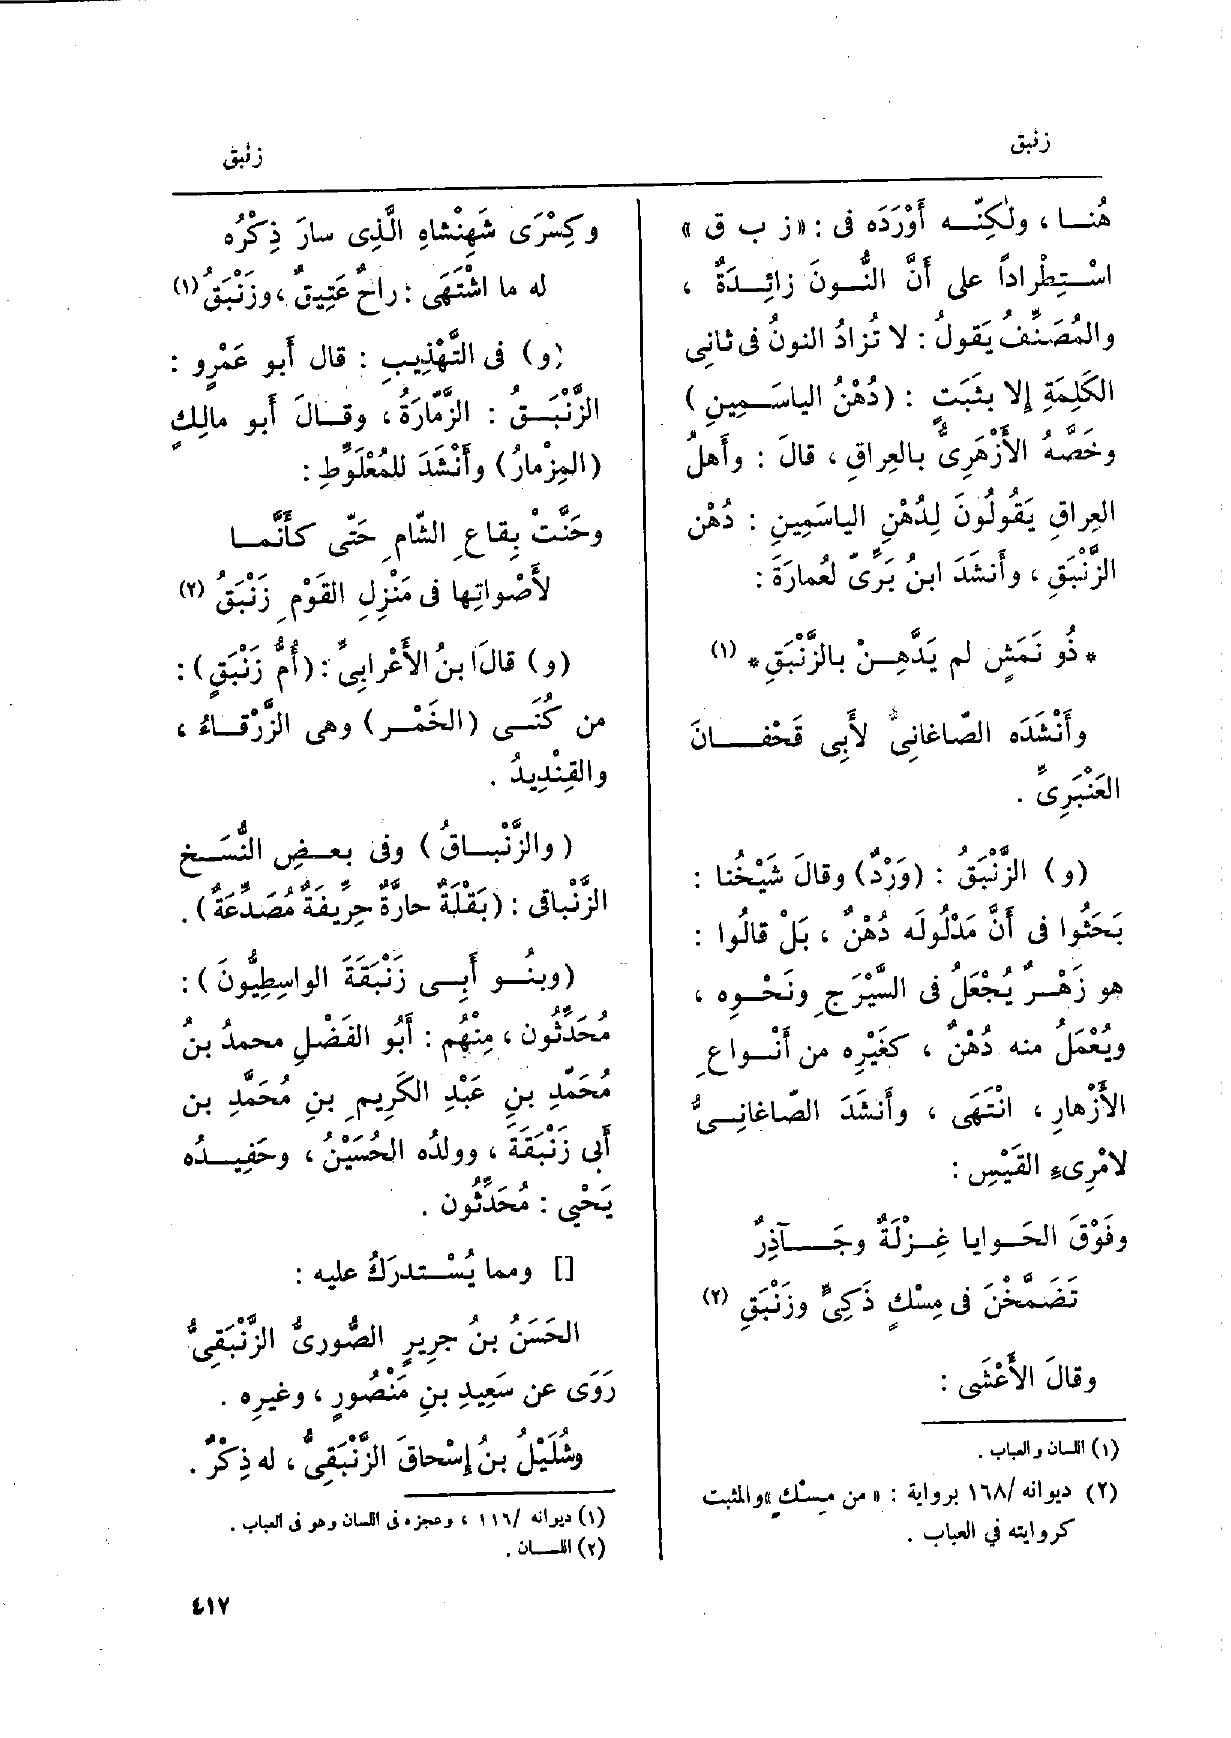 زنبق
زنبق
هُنــا ، ولٰكِنّــه أَوْرَدَه فى : «ز ب ق »
اسْــتِطْراداً على أَنَّ النُّــونَ زائِــدَةٌ ،
والمُصَنِّفُ يَقولُ : لا تُزادُ النونُ فى ثانِى
الكَلِمَةِ إلا بثَبَتٍ : (دُهْنُ الياسَــمِينِ)
وخَصَّهُ الأَزْهَرِىُّ بالعِراقِ ، قالَ : وأَهلُ
العِراقِ يَقُولُونَ لِدُهْنِ الياسَمِينِ : دُهْن
الزَّنْبَقِ ، وأَنشَدَ ابنُ بَرِّىّ لعُمارَةَ :
* ذُو نَمَشٍ لم يَدَّهِــنْ بالزَّنْبَقِ * (١)
وأَنْشَدَه الصّاغانِىُّ لأَبِى قَحْفــــانَ
العَنْبَرِىِّ .
(و) الزَّنْبَقُ : (وَرْدٌ) وقالَ شَيْخُنا :
بَحَثُوا فى أَنَّ مَدْلُولَه دُهْنٌ ، بَلْ قالُوا :
هو زَهْــرٌ يُجْعَلُ فى السَّيْرَجِ ونَحْــوِه ،
ويُعْمَلُ منه دُهْنٌ ، كغَيْرِه من أَنْــواعِ
الأَزْهارِ ، انْتَهَى ، وأَنشَدَ الصّاغانِــىُّ
لامْرِىءِ القَيْسِ :
وفَوْقَ الحَــوايا غِــزْلَةٌ وجَــــآذِرٌ
تَضَــمَّخْنَ فى مِسْكٍ ذَكِىٍّ وزَنْبَقِ (٢)
وقالَ الأَعْشَى :
(١) اللسان والعباب .
(٢) ديوانه /١٦٨ برواية : « من مِسْكٍ »والمثبت
كروايته في العباب .
وكِسْرَى شَهِنْشاهِ الَّذِى سارَ ذِكْرُه
له ما اشْتَهَى : راحٌ عَتِيقٌ ، وزَنْبَقُ (١)
(و) فى التَّهْذِيبِ : قال أَبو عَمْرٍو :
الزَّنْبَــقُ : الزَّمّارَةُ ، وقــالَ أَبو مالِكٍ
(المِزْمارُ) وأَنْشَدَ للمُعْلَوِّطِ :
وحَنَّتْ بِقاعِ الشّامِ حَتّى كأَنَّمــا
لأَصْواتِها فى مَنْزِلِ القَوْمِ زَنْبَقُ (٢)
(و) قالَ ابنُ الأَعْرابِىِّ : (أُمُّ زَنْبَقٍ) :
من كُنَــى (الخَمْــرِ) وهى الزَّرْقــاءُ ،
والقِنْدِيدُ .
(والزَّنْبــاقُ) وفى بعــضِ النُّسَــخ
الزَّنْباقى : (بَقْلَةٌ حارَّةٌ حِرِيفَةٌ مُصَدِّعَةٌ).
(وبنُــو أَبِــى زَنْبَقَةَ الواسِطِيُّونَ) :
مُحَدِّثُون ، مِنْهُم : أَبُو الفَضْلِ محمدُ بنُ
مُحَمّدِ بنِ عَبْدِ الكَرِيمِ بنِ مُحَمَّدِ بن
أَبى زَنْبَقَةَ ، وولدُه الحُسَيْنُ ، وحَفِيــدُه
يَحْيى : مُحَدِّثُون .
[] ومما يُسْــتدرَكُ عليه :
الحَسَنُ بنُ جريرٍ الصُّورىُّ الزَّنْبَقِىُّ
رَوَى عن سَعِيدِ بنِ مَنْصُورٍ ، وغيرِه .
وشُلَيْلُ بنُ إِسْحاقَ الزَّنْبَقِىُّ ، له ذِكْرٌ .
(١) ديوانه /١١٦ ، وعجزه فى اللسان وهو فى العباب .
(٢) اللــسان .
٤١٧